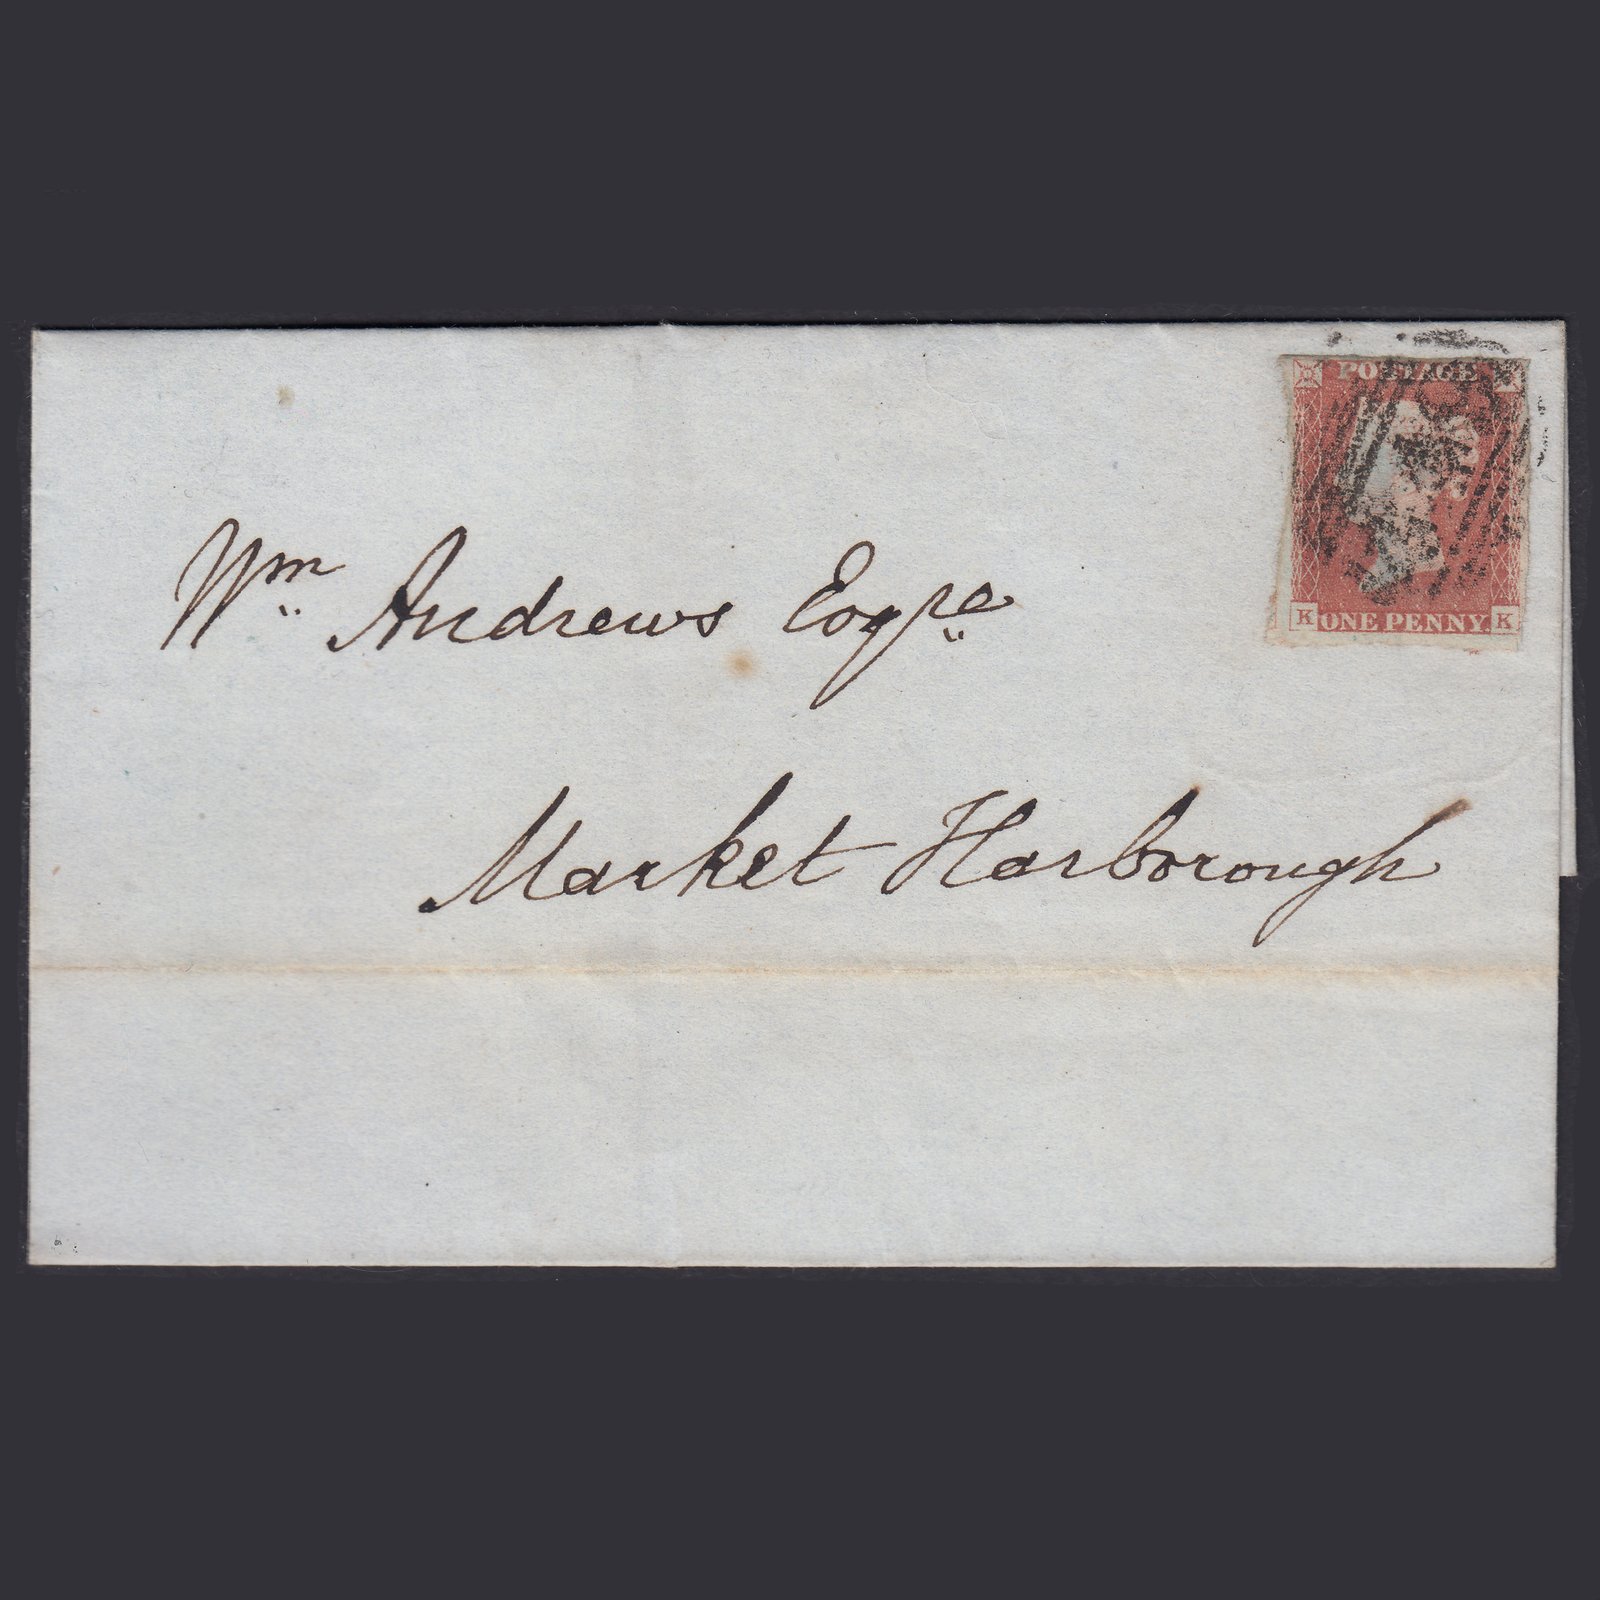 POSTAGE
K ONE PENNY. K
Wm Andrews Esqre
Market Harborough